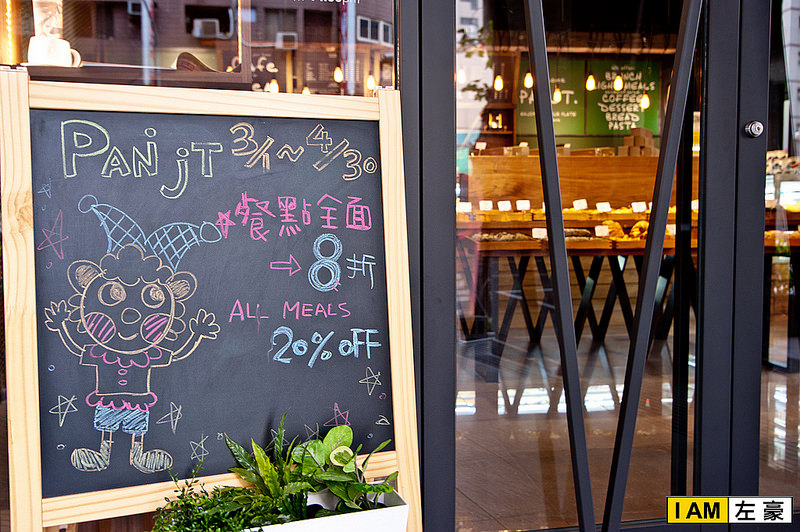 PANJIT. 3/1~4/30
餐點全面
→8折
ALL MEALS
20% OFF
BRUNCH
LIGHT MEALS
COFFEE
DESSERT
BREAD
PASTA
I AM 左豪